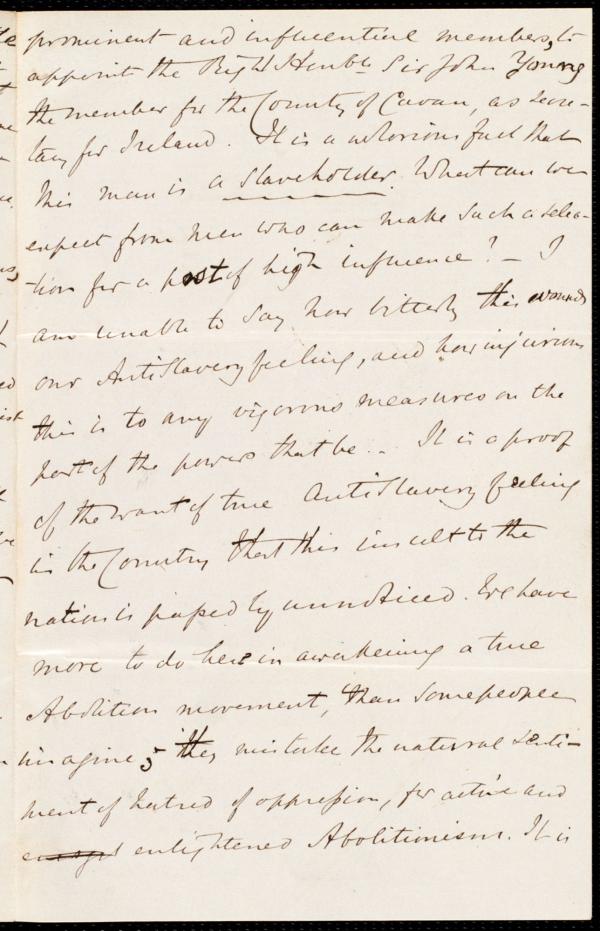 prominent and influential members, to
appoint the Right Honble Sir John Young
the member for the County of Cavan, as secre-
tary for Ireland. It is a notorious fact that
this man is a slaveholder. What can we
expect from men who can make such a selec-
-tion for a post of high influence? – I
am unable to say how bitterly this wounds
our AntiSlavery feeling, and how injurious
this is to any vigorous measures on the
part of the powers that be. – It is a proof
of the want of true AntiSlavery feeling
in the Country that this insult to the
nation is passed by unnoticed. We have
more to do here in awakening a true
Abolition movement, than some people
imagine; they mistake the natural senti-
ment of hatred of oppression, for active and
enlightened Abolitionism. It is